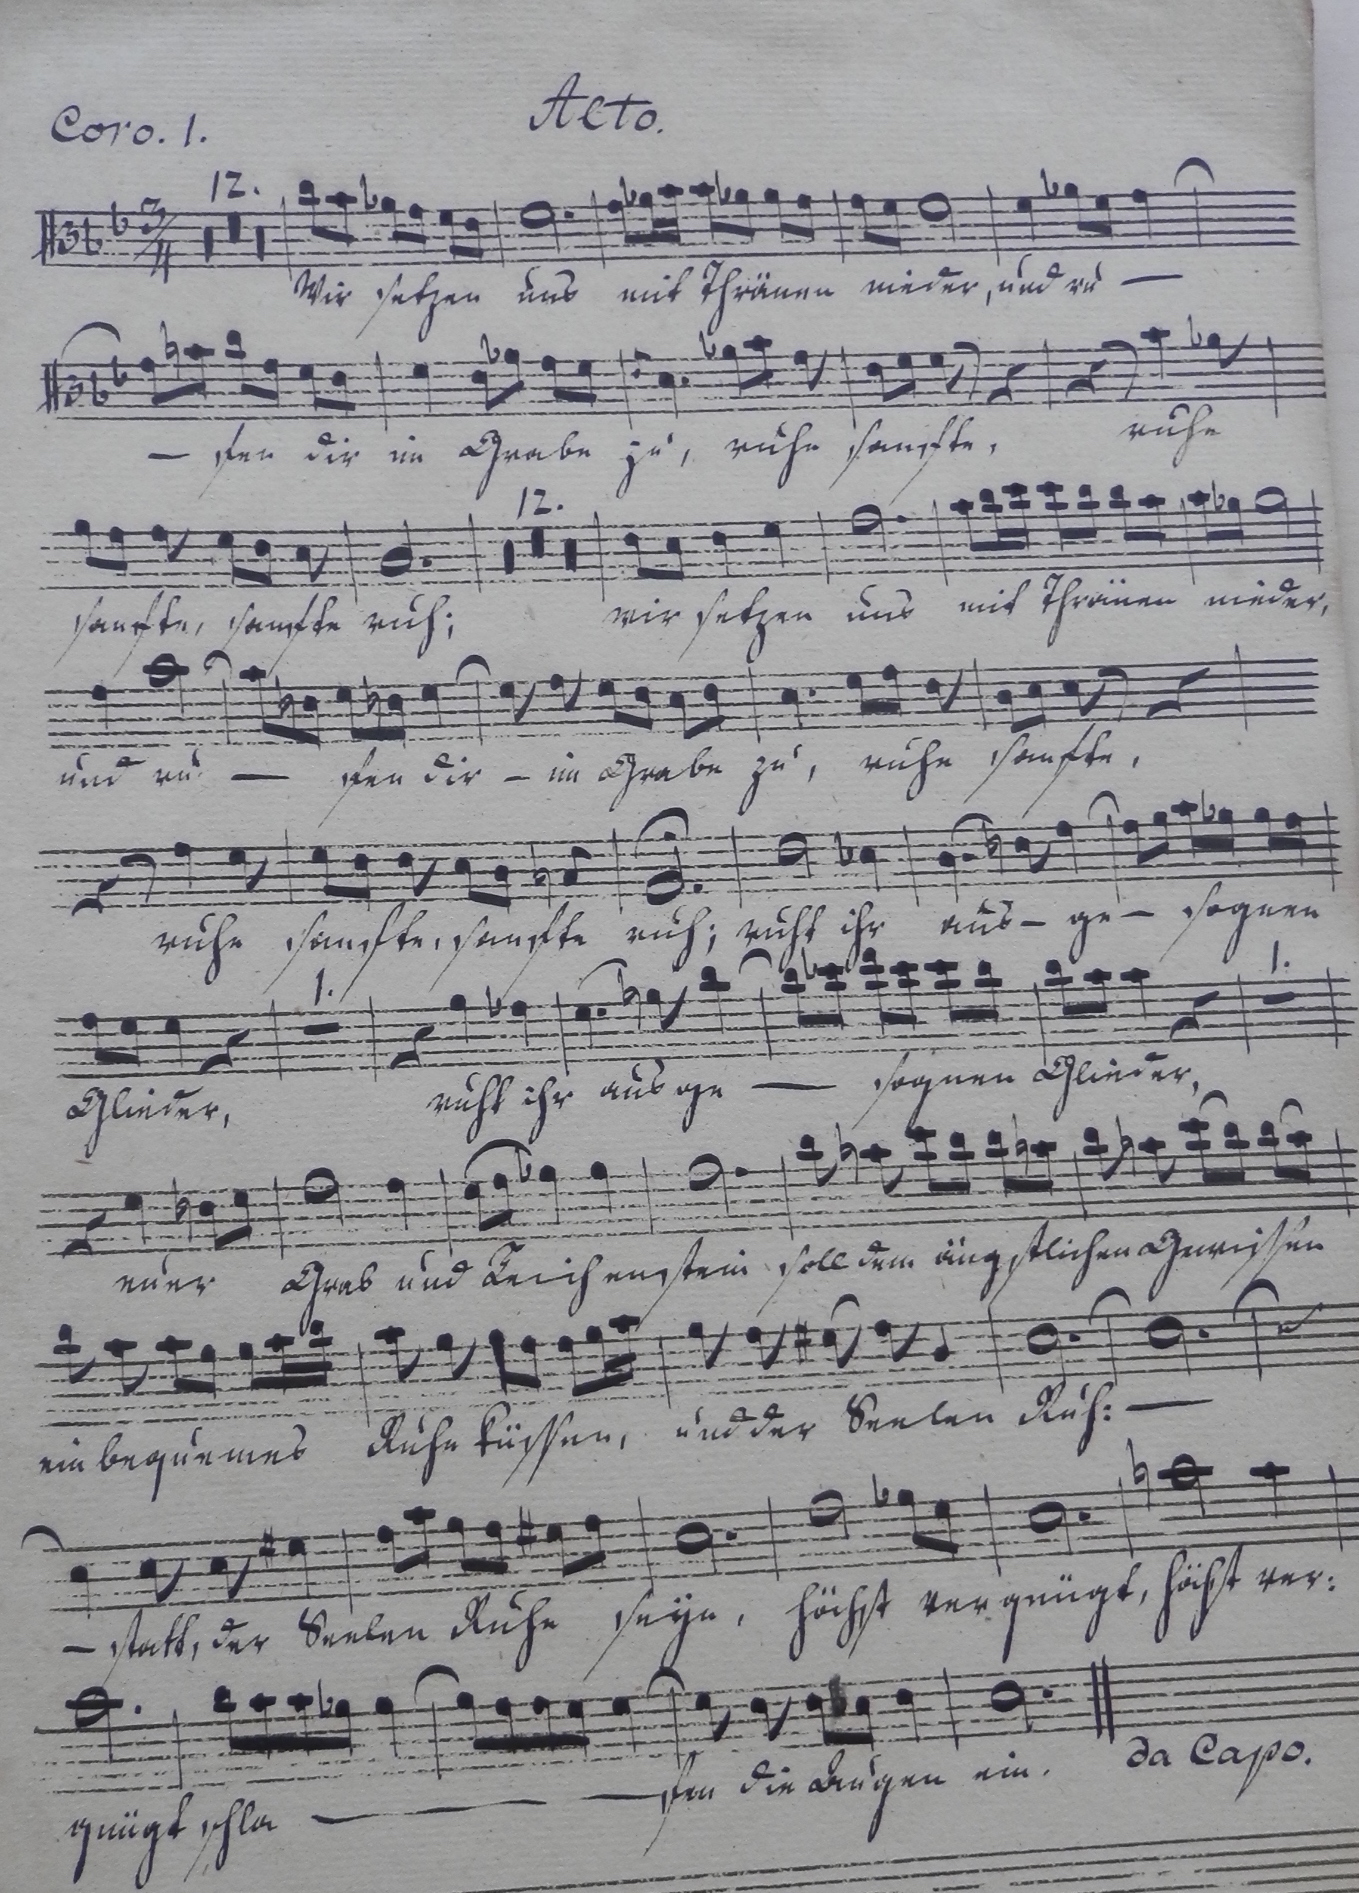 Coro. 1. Alto.
12.
Wir setzen uns mit Thränen nieder, und ru —
— fen dir im Grabe zu, ruhe sanfte, ruhe
12.
sanfte, sanfte ruh; wir setzen uns mit Thränen nieder,
und ru — fen dir – im Grabe zu, ruhe sanfte,
ruhe sanfte, sanfte ruh; ruht ihr aus – ge – sognen
1. 1.
Glieder, ruht ihr aus ge — sognen Glieder,
euer Grab und Leichenstein soll dem ängstlichen Gewissen
ein bequemes Ruhe küssen, und der Seelen Ruh: —
– statt, der Seelen Ruhe seyn, höchst vergnügt, höchst ver:
gnügt schla — — — — fen die Augen ein. da Capo.